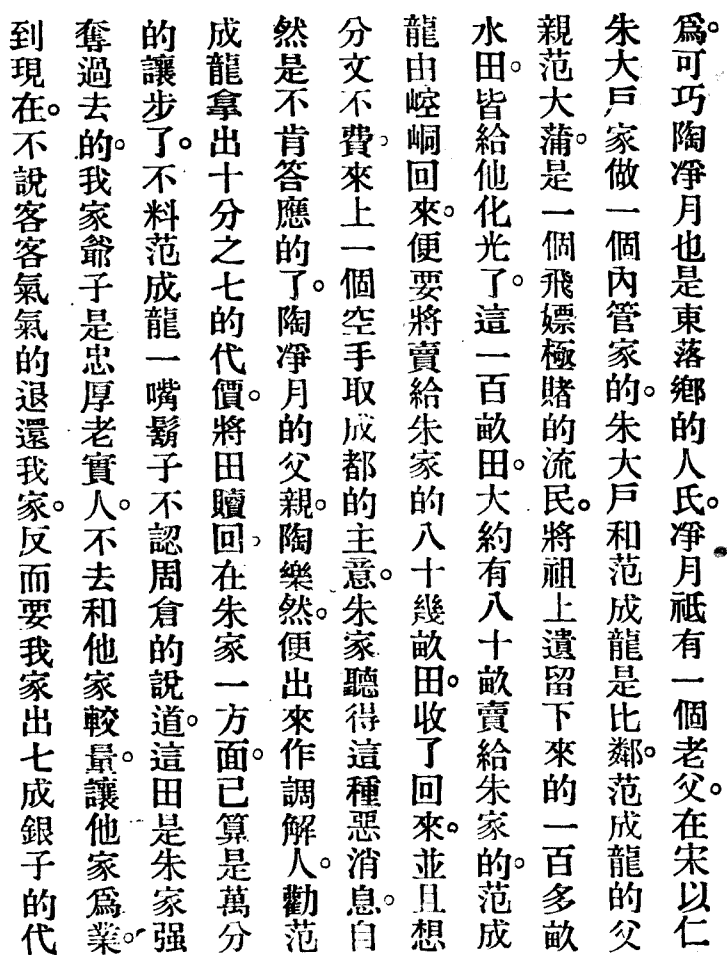 爲。可巧陶凈月也是東落鄉的人氏。凈月祗有一個老父。在宋以仁
朱大戶家做一個內管家的。朱大戶和范成龍是比鄰。范成龍的父
親范大蒲。是一個飛嫖極賭的流民。將祖上遺留下來的一百多畝
水田。皆給他化光了。這一百畝田。大約有八十畝賣給朱家的。范成
龍由崆峒回來。便要將賣給朱家的八十幾畝田。收了回來。並且想
分文不費。來上一個空手取成都的主意。朱家聽得這種惡消息。自
然是不肯答應的了。陶凈月的父親。陶樂然。便出來作調解人。勸范
成龍拿出十分之七的代價。將田贖回。在朱家一方面。已算是萬分
的讓步了。不料范成龍一嘴鬍子不認周倉的說道。這田是朱家强
奪過去的。我家爺子是忠厚老實人。不去和他家較量。讓他家爲業。
到現在。不說客客氣氣的退還我家。反而要我家出七成銀子的代